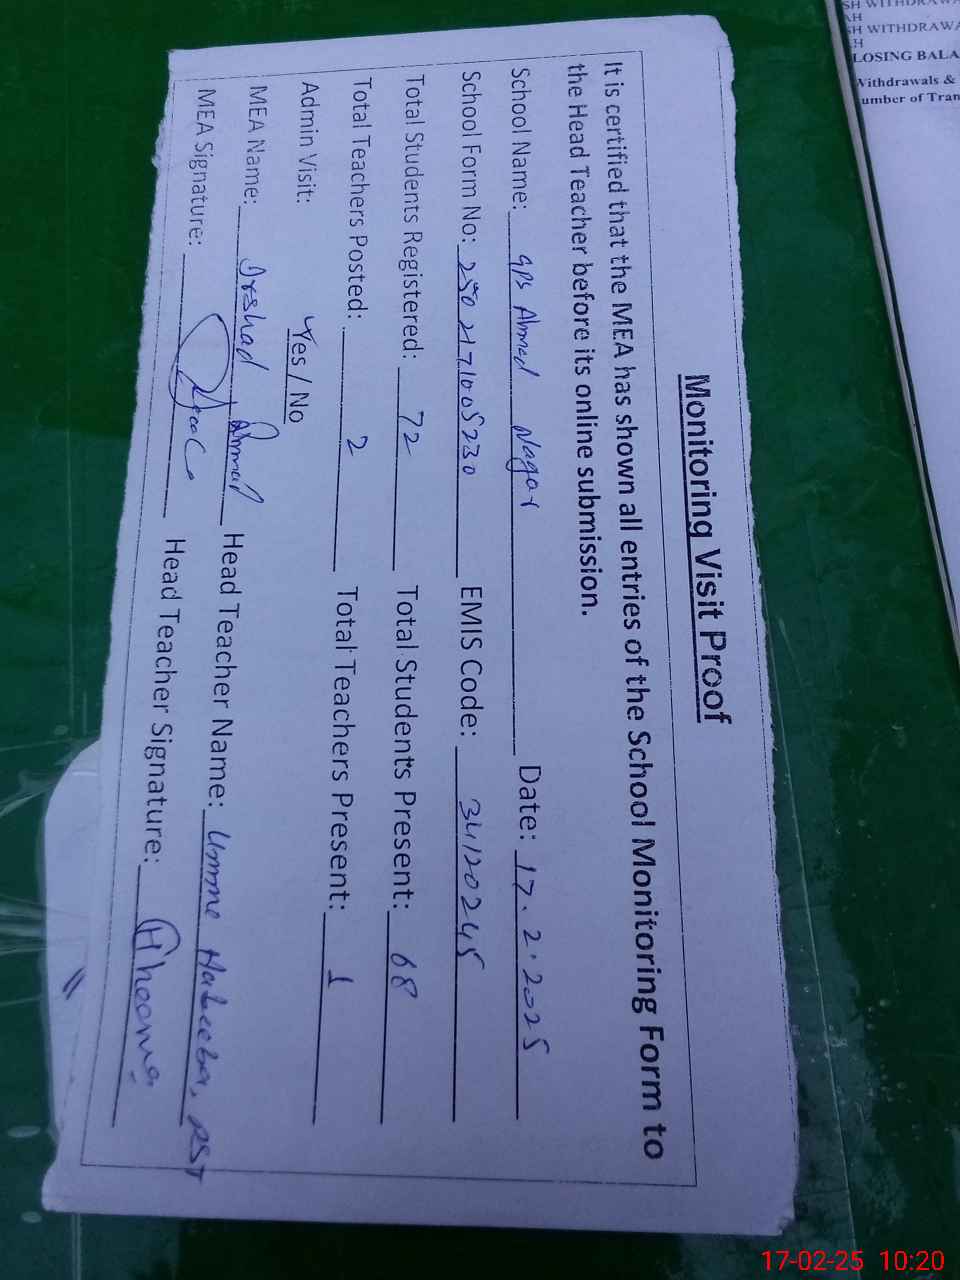 Monitoring Visit Proof
It is certified that the MEA has shown all entries of the School Monitoring Form to
the Head Teacher before its online submission.
School Name: GPS Ahmed Nagar Date: 17.2.2025
School Form No: 2502171005230 EMIS Code: 34120245
Total Students Registered: 72 Total Students Present: 68
Total Teachers Posted: 2 Total Teachers Present: 1
Admin Visit: Yes / No
MEA Name: Irshad Ahmad Head Teacher Name: Umme Habeeba,
MEA Signature: Head Teacher Signature:
SH WITHDRAWA
SH WITHDRAWA
LOSING BALA
Withdrawals &
umber of Tran
17-02-25 10:20